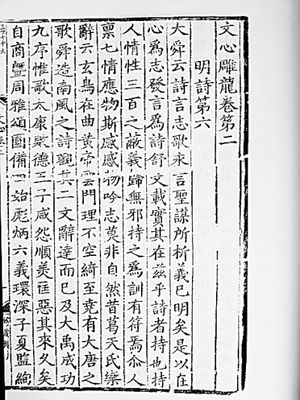 文心雕龍卷第二
明詩第六
大舜云詩言志歌永言聖謨所析義已明矣是以在
心爲志發言爲詩舒文載實其在茲乎詩者持也持
人情性三百之蔽義歸無邪持之爲訓有符焉尒人
禀七情應物斯感感物吟志莫非自然昔葛天氏樂
辭云玄鳥在曲黃帝雲門理不空綺至堯有大唐之
歌舜造南風之詩觀其二文辭達而已及大禹成功
九序惟歌太康敗德五子咸怨順美匡惡其來久矣
自商暨周雅頌圓備四始彪炳六義環深子夏監絢